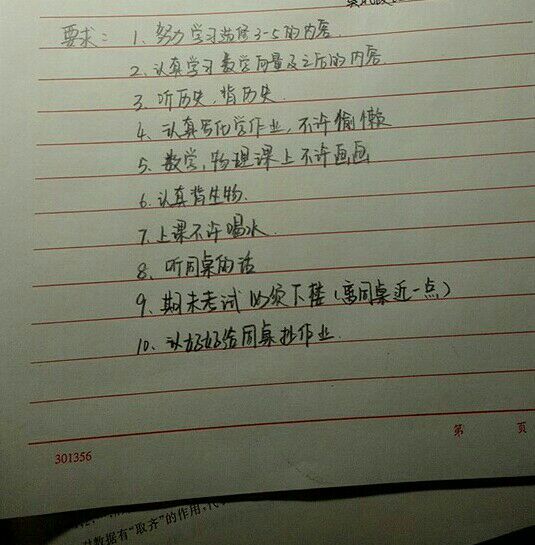 要求：1、努力学习选修3-5的内容.
2、认真学习数学向量及之后的内容
3、听历史，背历史.
4、认真写化学作业，不许偷懒
5、数学，物理课上不许画画
6、认真背生物.
7、上课不许喝水.
8、听同桌的话
9、期末考试必须下楼（离同桌近一点）
10、认好好给同桌抄作业.
301356
第 页
对数据有“取齐”的作用，